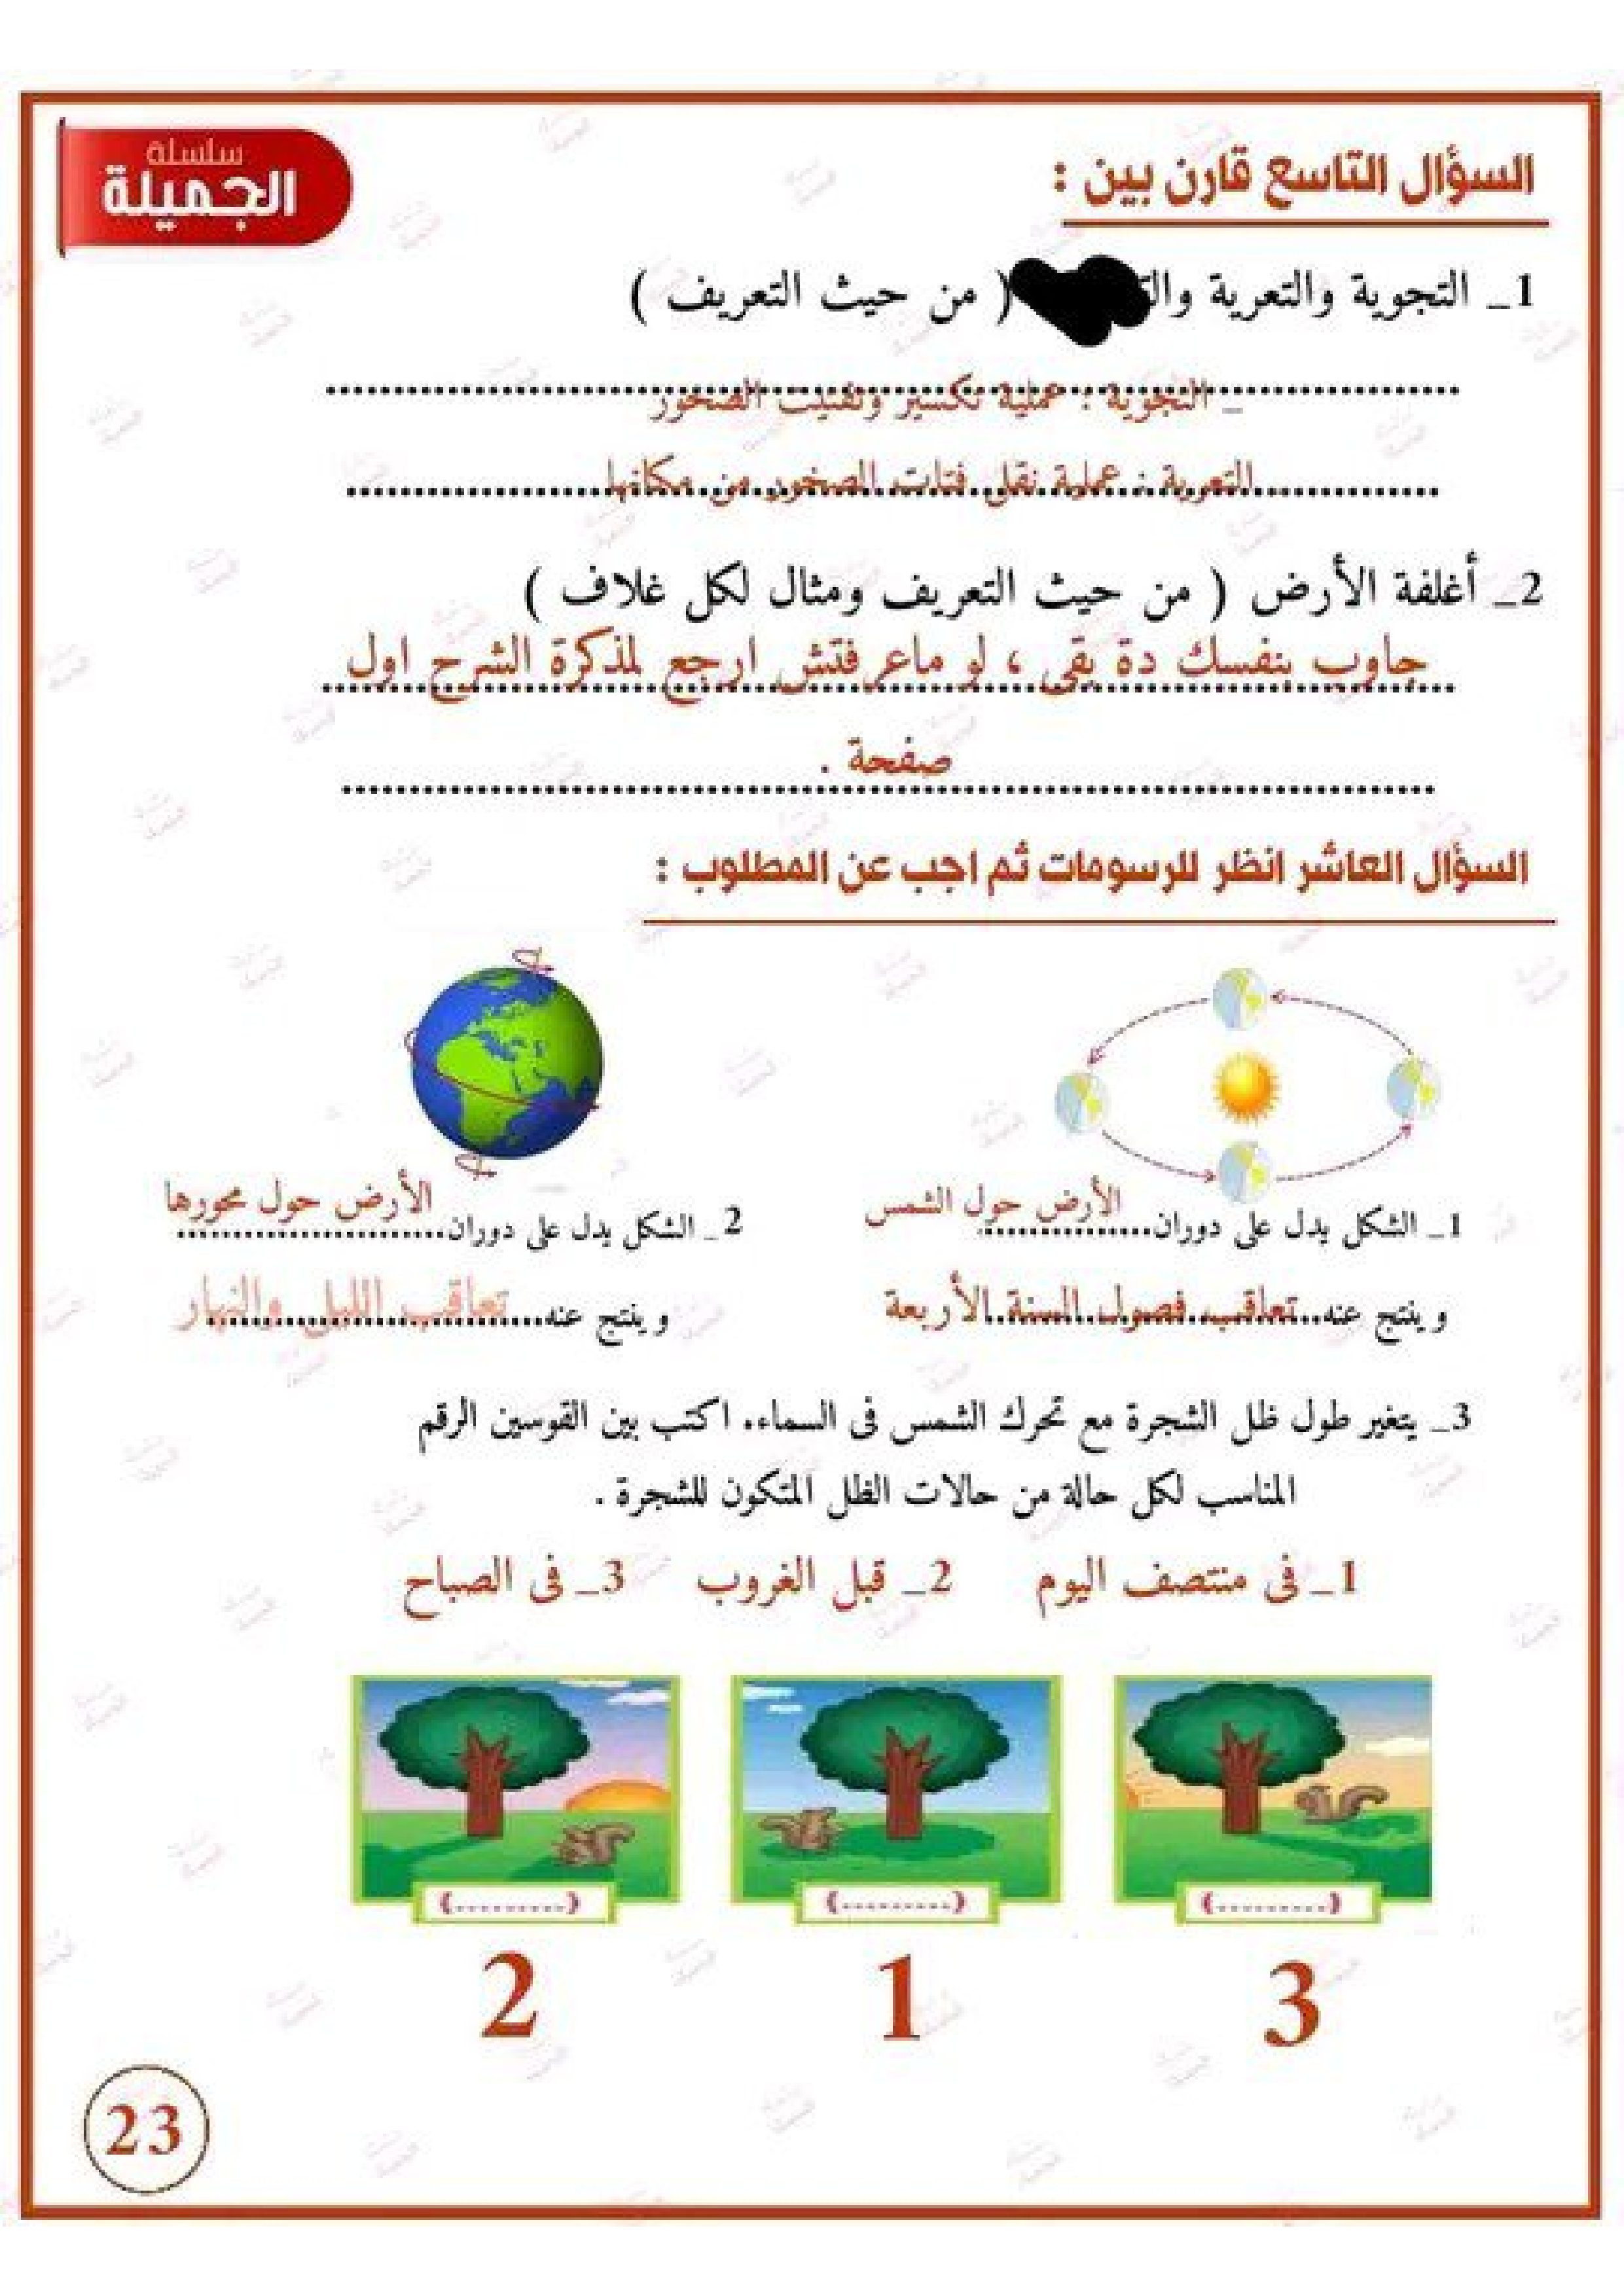 سلسلة
الجميلة
السؤال التاسع قارن بين :
1_ التجوية والتعرية ( من حيث التعريف )
_ التجوية : عملية تكسير وتفتيت الصخور
التعرية : عملية نقل فتات الصخور من مكانها
2_ أغلفة الأرض ( من حيث التعريف ومثال لكل غلاف )
جاوب بنفسك دة بقى ، لو ماعرفتش ارجع لمذكرة الشرح اول
صفحة .
السؤال العاشر انظر للرسومات ثم اجب عن المطلوب :
1_ الشكل يدل على دوران الأرض حول الشمس
وينتج عنه تعاقب فصول السنة الأربعة
2_ الشكل يدل على دوران الأرض حول محورها
وينتج عنه تعاقب الليل والنهار
3_ يتغير طول ظل الشجرة مع تحرك الشمس فى السماء. اكتب بين القوسين الرقم
المناسب لكل حالة من حالات الظل المتكون للشجرة .
1_ فى منتصف اليوم 2_ قبل الغروب 3_ فى الصباح
(.........) (.........) (.........)
3 1 2
23